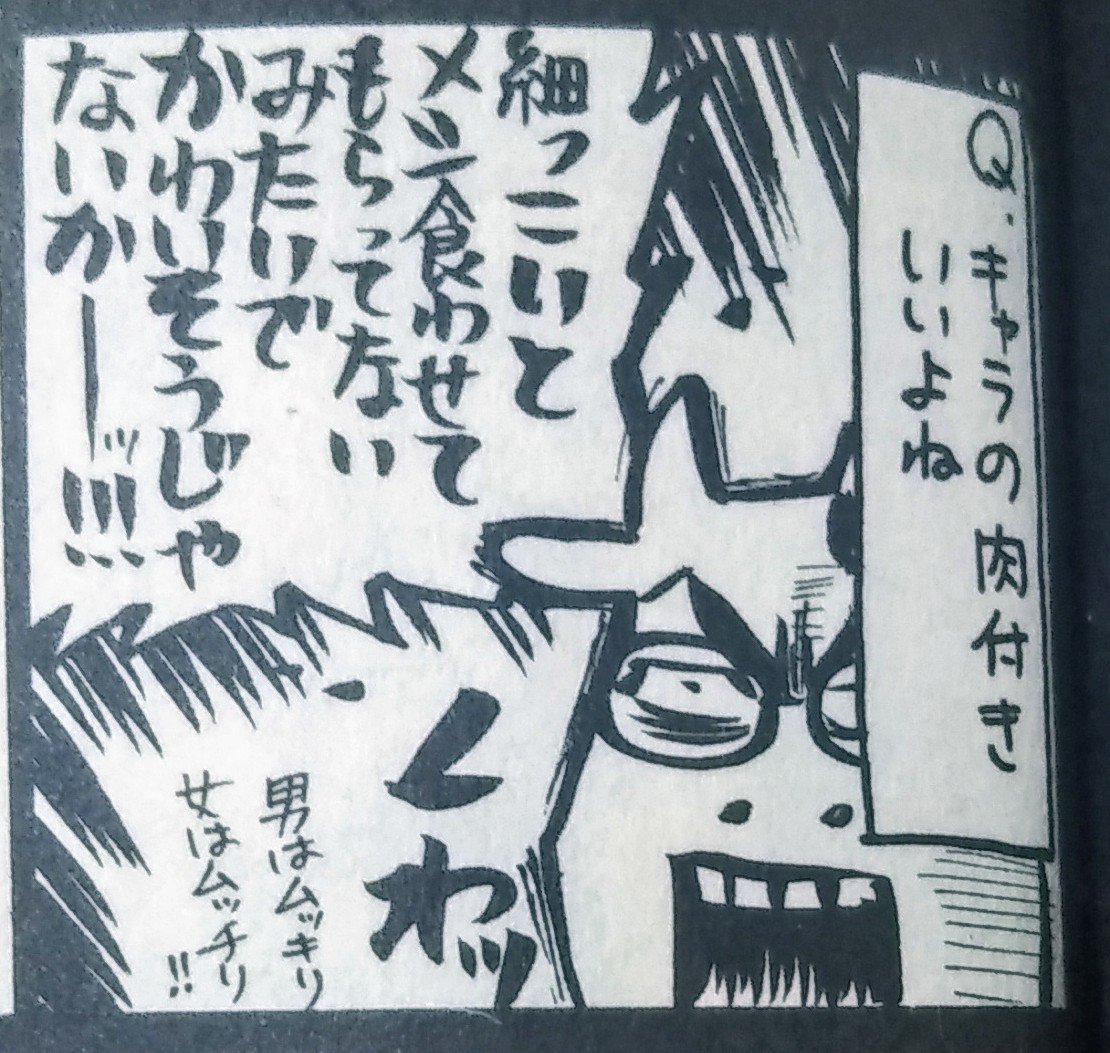 Q.キャラの肉付き
いいよね
細っこいと
メシ食わせて
もらってない
みたいで
かわいそうじゃ
ないかーーッ!!!
くわッ
男はムッキリ
女はムッチリ
!!